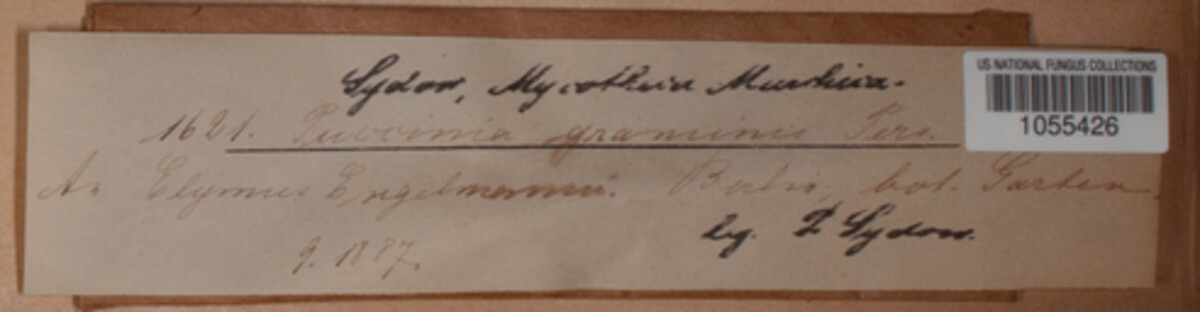 Sydow, Mycotheca Marchica.
1621. Puccinia graminis Pers.
An Elymus Engelmanni. Berlin, bot. Garten
leg. P Sydow.
9. 1887.
US NATIONAL FUNGUS COLLECTIONS
1055426